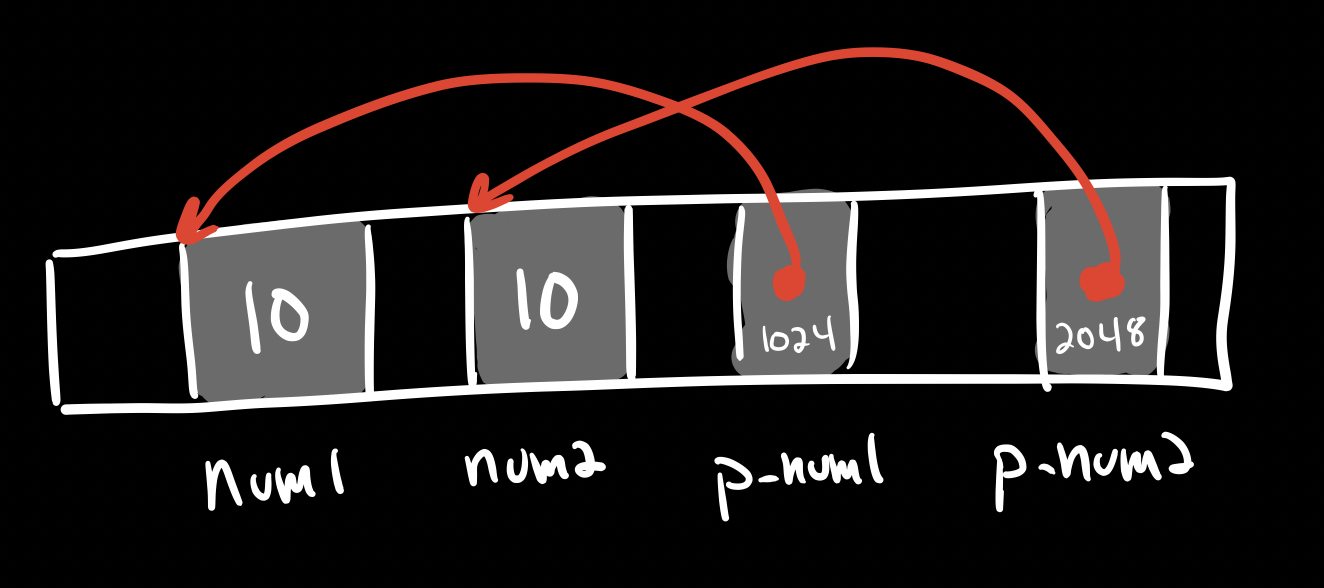 10 10 1024 2048
num1 num2 p-num1 p-num2